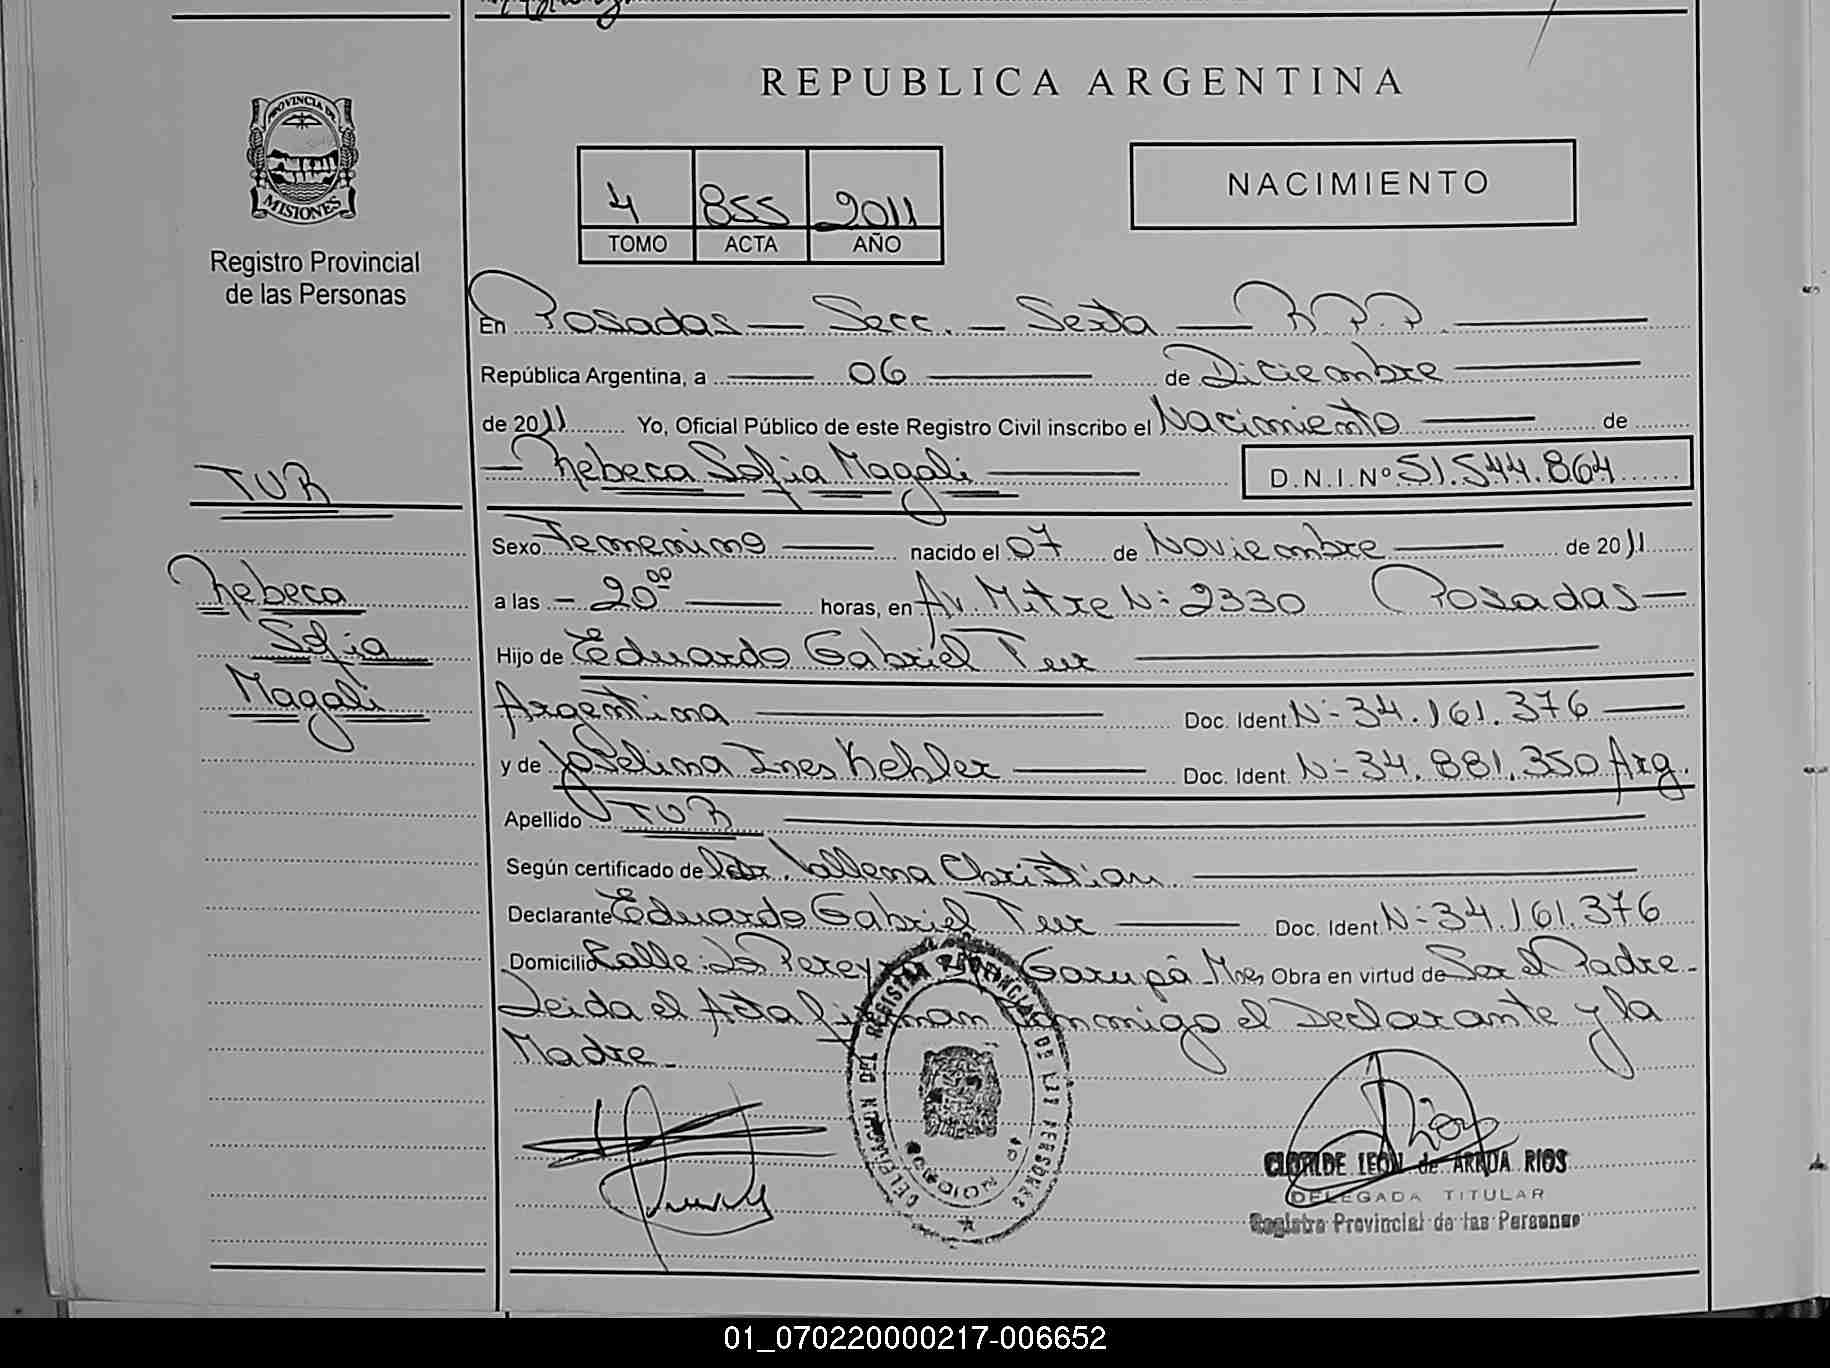 REPUBLICA ARGENTINA
PROVINCIA DE
MISIONES
Registro Provincial
de las Personas
4 855 2011
TOMO ACTA AÑO
NACIMIENTO
En Posadas — Secc. — Sexta — R.P.P.
República Argentina, a 06 de Diciembre
de 2011 Yo, Oficial Público de este Registro Civil inscribo el Nacimiento de
Rebeca Sofia Magali D.N.I.Nº 51.544.864
TUR
Rebeca
Sofia
Magali
Sexo Femenino nacido el 07 de Noviembre de 2011
a las 20 00 horas, en Av. Mitre Nº 2330 Posadas
Hijo de Eduardo Gabriel Tur
Argentina Doc. Ident Nº 34.161.376
y de Joselina Ines Kehler Doc. Ident. Nº 34.881.350 Arg.
Apellido TUR
Según certificado de Vallena Christian
Declarante Eduardo Gabriel Tur Doc. Ident Nº 34.161.376
Domicilio Calle: Garupá Mnes Obra en virtud de Ser el Padre-
Leida el Acta firman conmigo el Declarante y la
Madre-
DELEGACION DEL REGISTRO PROVINCIAL DE LAS PERSONAS
CLOTILDE LEON de ARRUA RIOS
DELEGADA TITULAR
Registro Provincial de las Personas
01_070220000217-006652